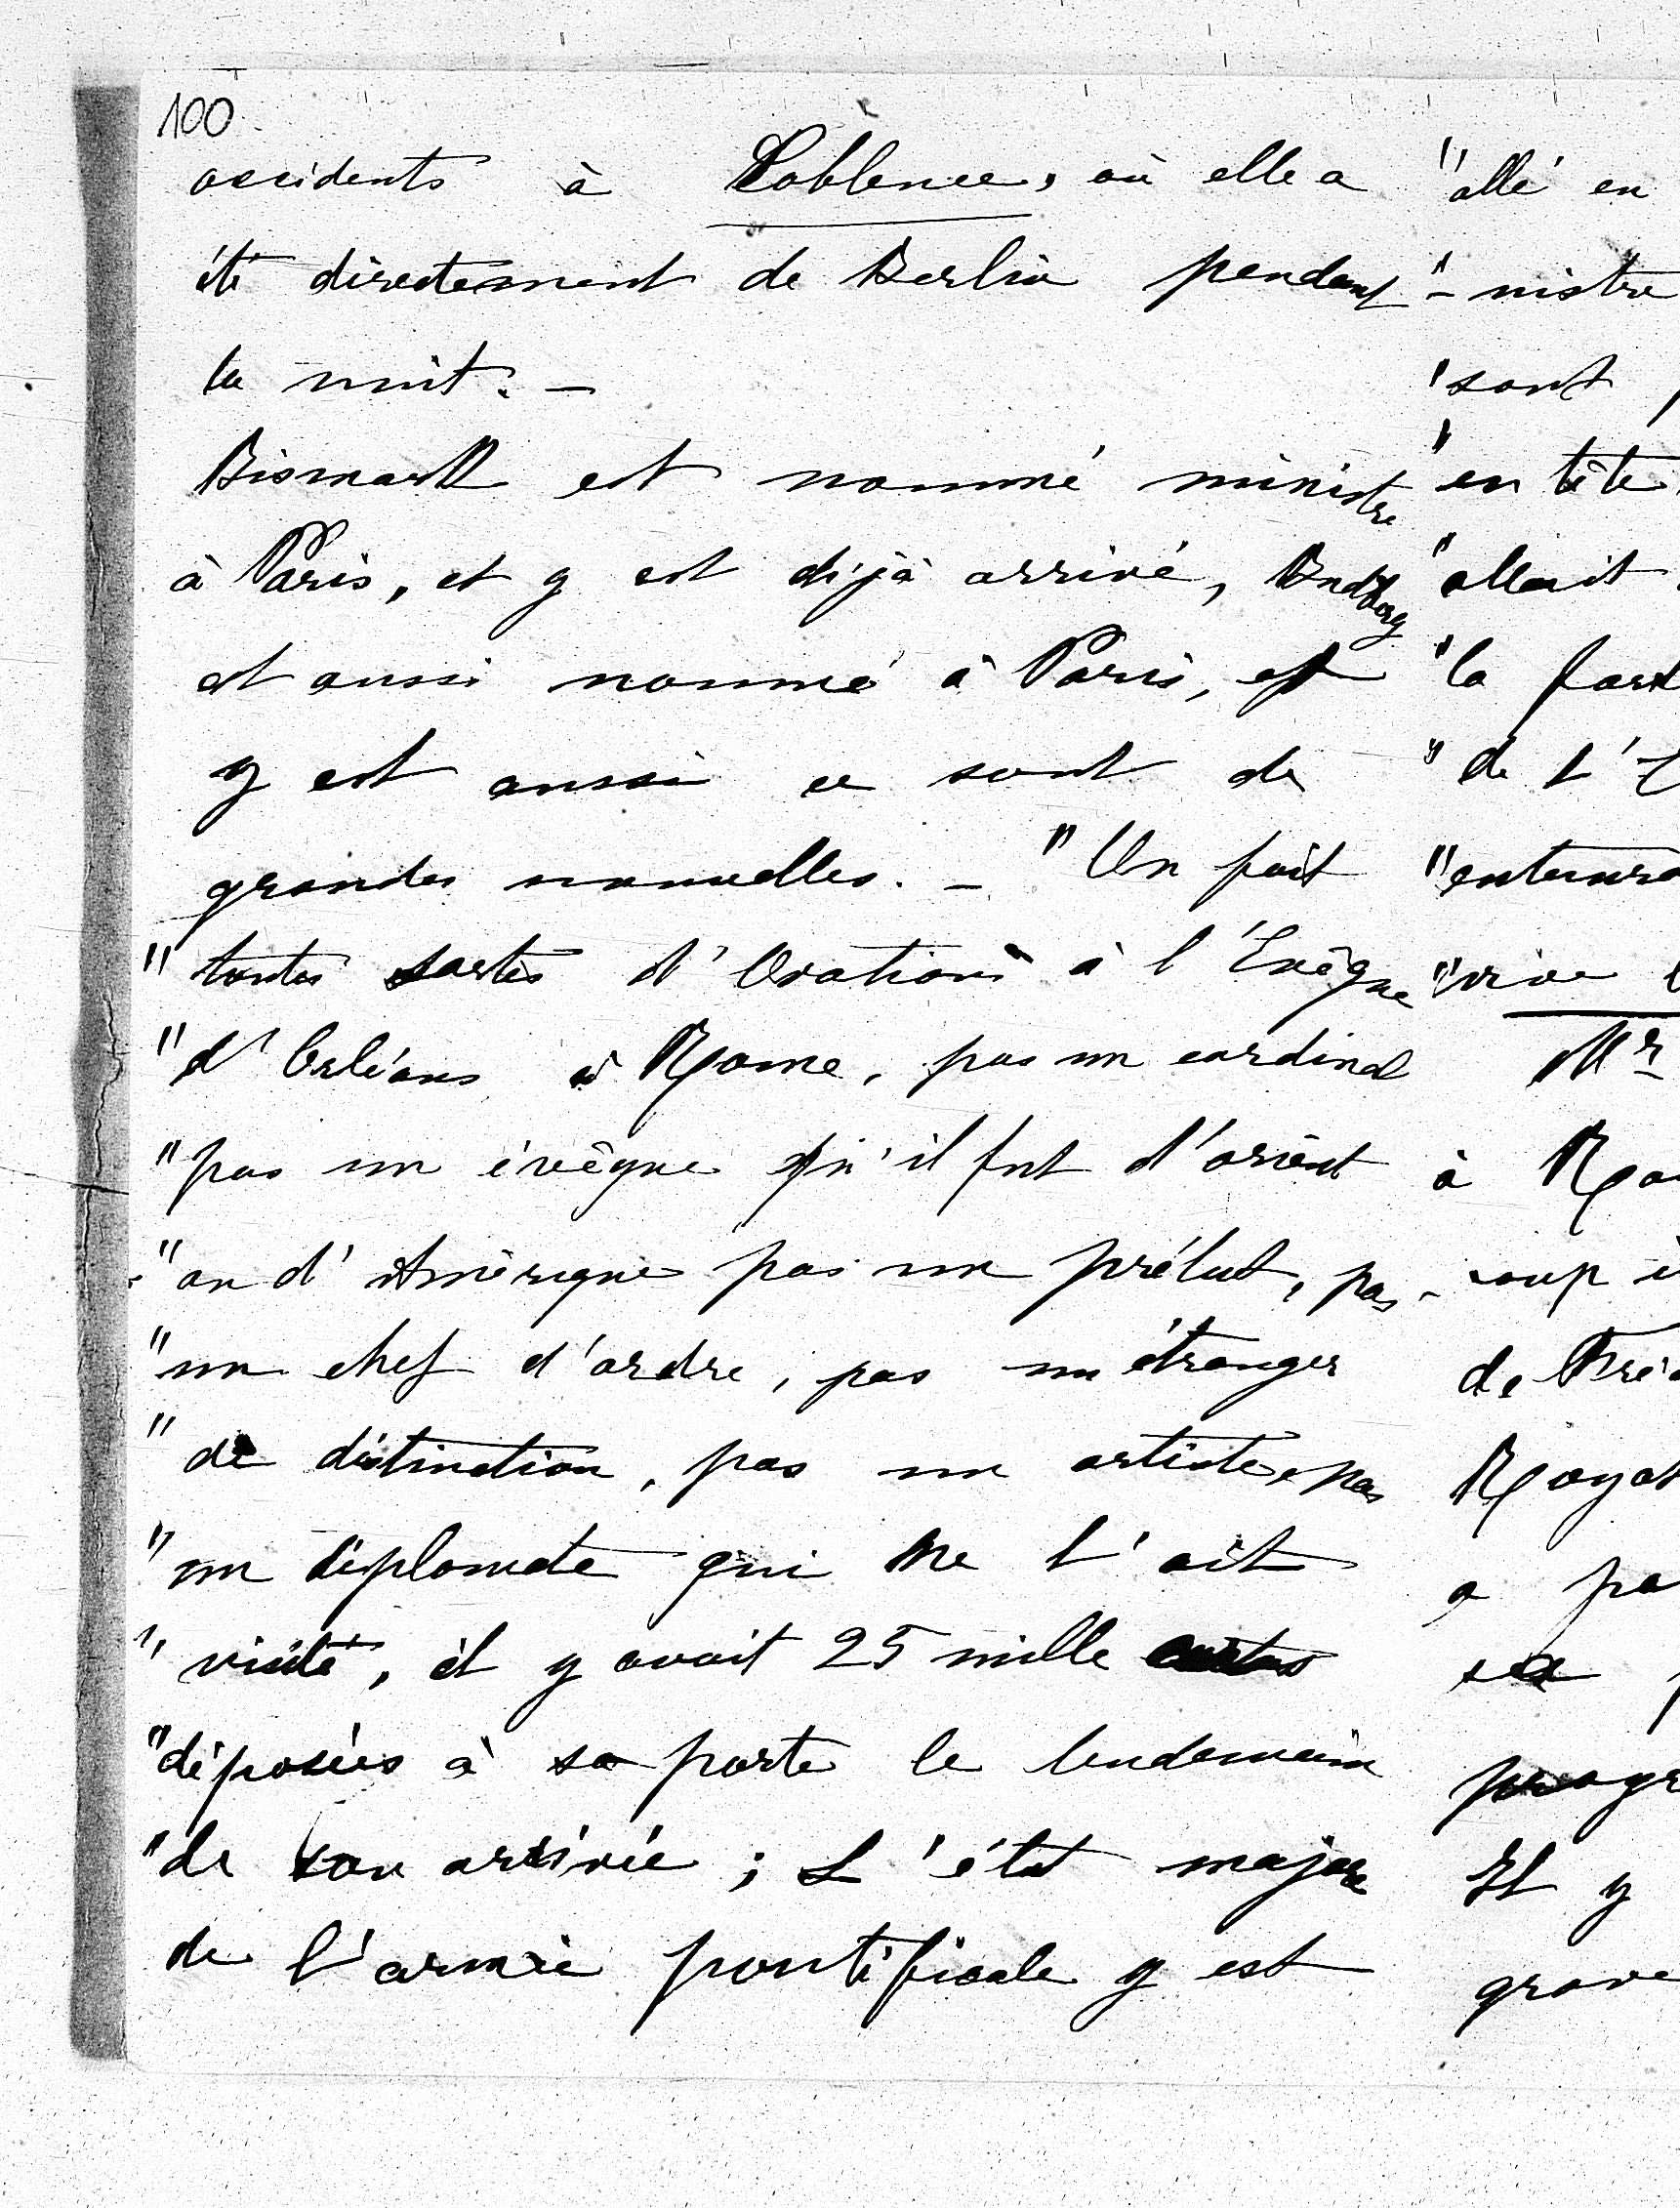 100
accidents à Coblence, où elle a
été directement de Berlin pendant
la nuit. —
Bismark est nommé ministre
à Paris, et y est déjà arrivé, Budberg
est aussi nommé à Paris, et
y est aussi ce sont de
grandes nouvelles. — "On fait
"toutes sortes d'Ovations à l'Evêque
"d'Orléans à Rome, pas un cardinal
"pas un évêque qu'il fut d'orient
"ou d'Amérique pas un prélat, pas
"un chef d'ordre, pas un étranger
"de distinction, pas un artiste, pas
"un diplomate qui ne l'ait
"visité, il y avait 25 mille cartes
"déposées à sa porte le lendemain
"de son arrivée ; L'état major
de l'armée pontificale y est
"allé en
"-nistre
"sont
"en tête
"allait
"la
"de l'
"vive
Mr
à
-coup
de
a
Il y